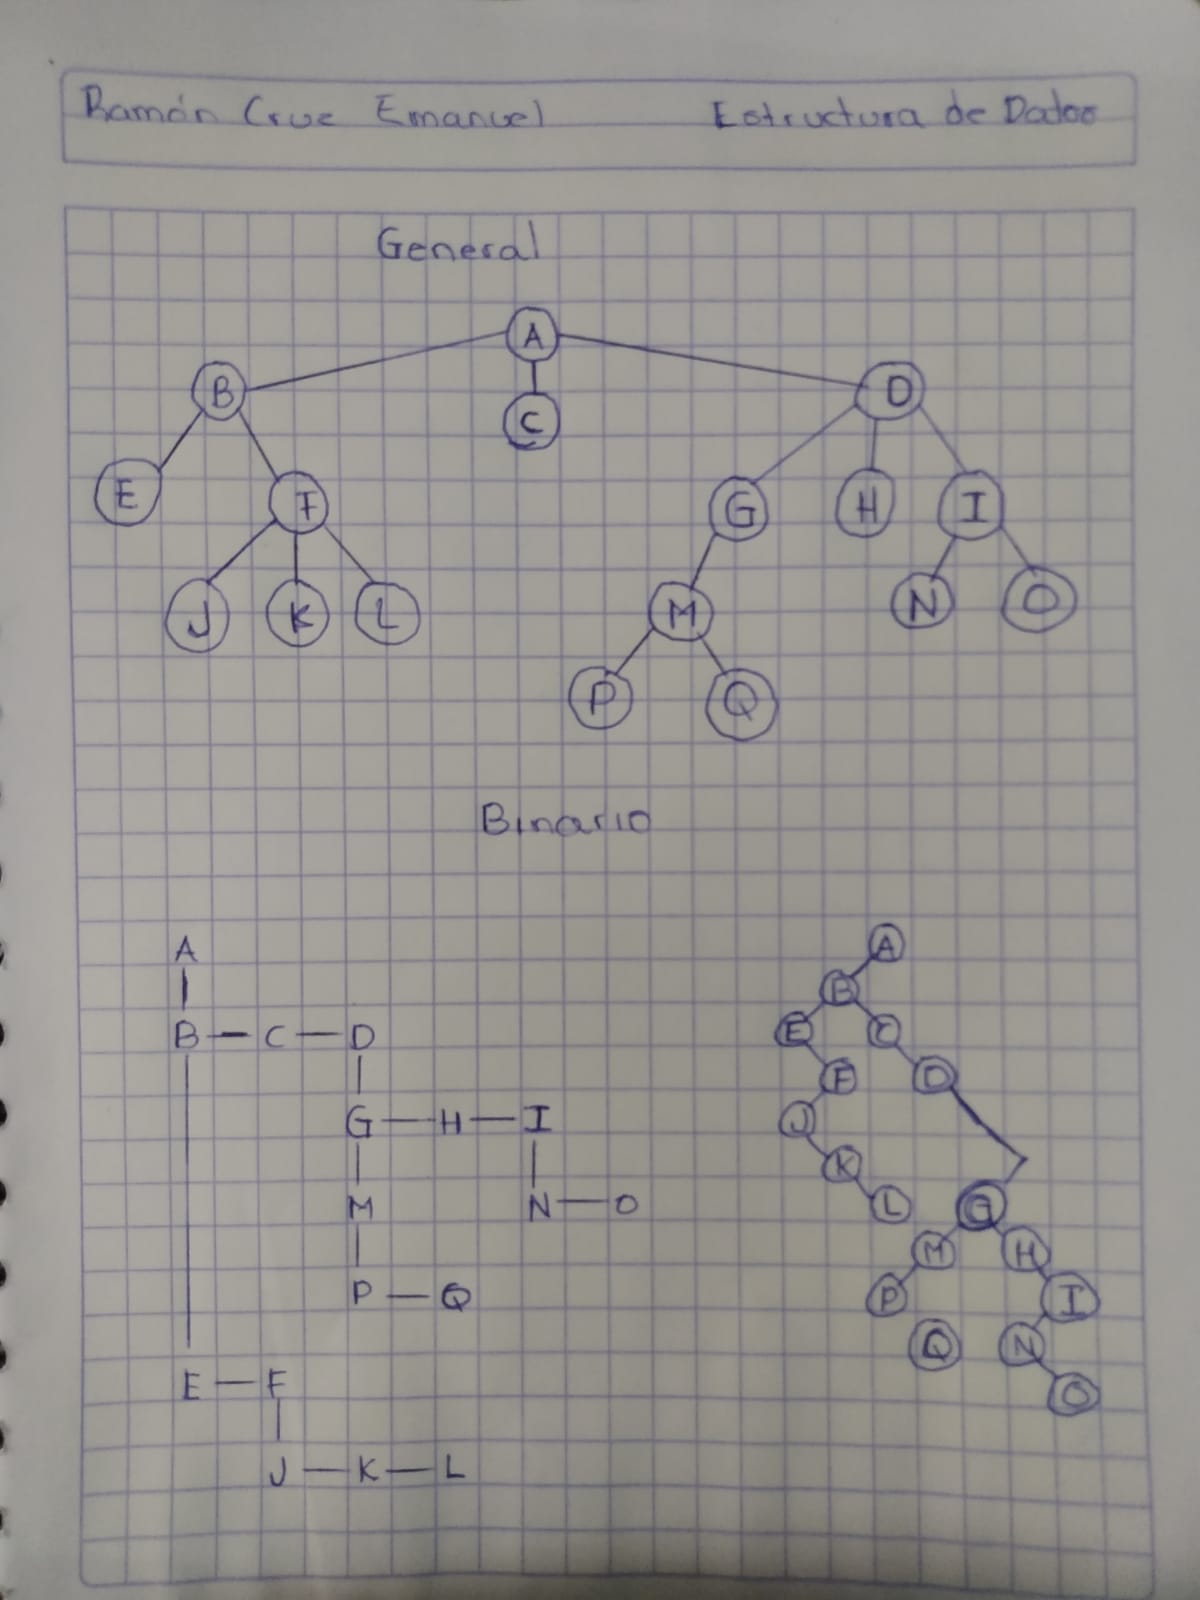 Ramón Cruz Emanuel Estructura de Datos
General
A
B C D
E F G H I
J K L M N O
P Q
Binario
A
B — C — D
G — H — I
M N — O
P — Q
E — F
J — K — L
A
B
E C
F D
J
K
L G
M H
P I
Q N
O